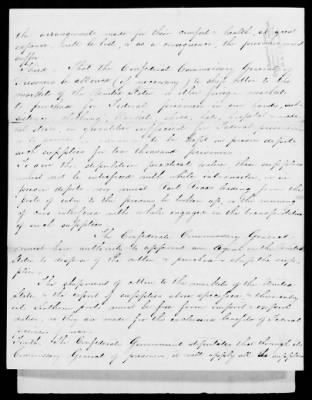 the arrangements made for their comfort & health, at great
expense, will be lost, & as a consequence, the prisoners must
suffer
Third. That the Confederate Commissary General of
Prisoners be allowed (if necessary) to ship cotton to the
markets of the United States or other foreign markets
to purchase for Federal prisoners in our hands, sub-
sistence, clothing, blankets, shoes, hats, hospital
stores, in quantities sufficient for Federal prisoners
to be kept on hand in prison depots
supplies for ten thousand prisoners
To give this stipulation practical value, these supplies
must not be interfered with while in
prison depots nor must Rail Roads leading from the
port of entry to the prisons be broken up, or the running
of cars interfered with while engaged in the transportation
of such supplies
The Confederate Commissary General
must have authority to appoint an Agent in the United
States to dispose of the cotton & purchase & ship the sup-
plies.
The shipment of cotton to the markets of the United
States & the export of supplies above specified, &
out Southern ports must be free from import & export
duties, as they are made for the exclusive benefit of Federal
Prisoners of war.
Fourth. The Confederate Government stipulates that through its
Commissary General of prisoners it will supply all the supplies